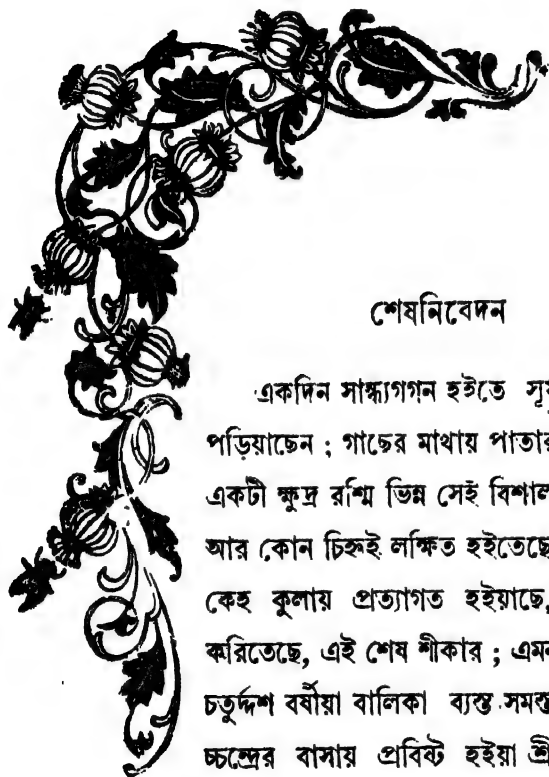 শেষনিবেদন
একদিন সান্ধ্যগগন হইতে সূ
পড়িয়াছেন ; গাছের মাথায় পাতার
একটী ক্ষুদ্র রশ্মি ভিন্ন সেই বিশাল
আর কোন চিহ্নই লক্ষিত হইতেছে
কেহ কুলায় প্রত্যাগত হইয়াছে,
করিতেছে, এই শেষ শীকার ; এমন
চতুর্দ্দশ বর্ষীয়া বালিকা ব্যস্ত সমস্ত
চ্চন্দ্রের বাসায় প্রবিষ্ট হইয়া শ্রী